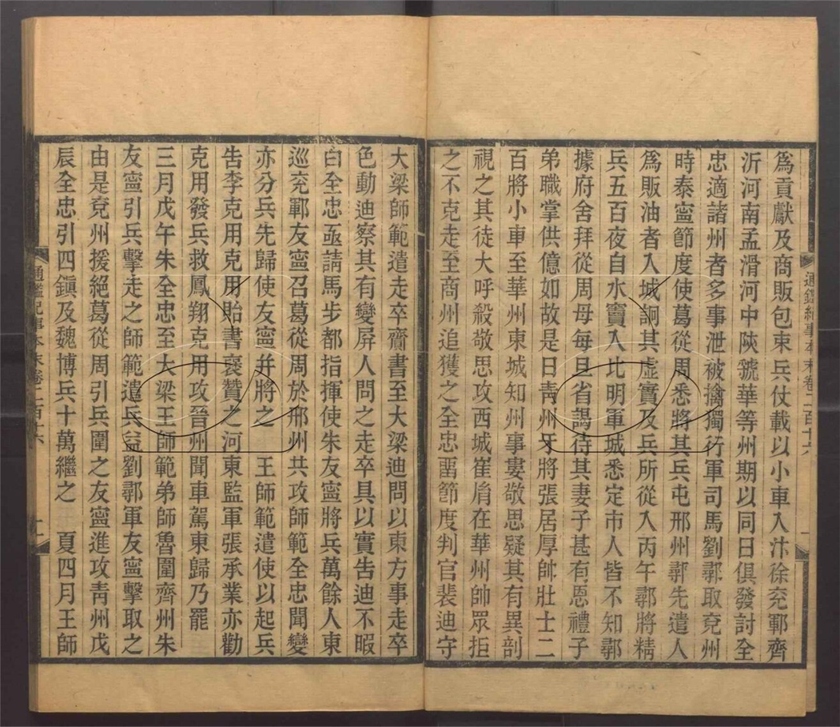 爲貢獻及商販包束兵仗載以小車入汴徐兗鄆齊
沂河南孟滑河中陝虢華等州期以同日俱發討全
忠適諸州者多事泄被擒獨行軍司馬劉鄩取兗州
時泰寧節度使葛從周悉將其兵屯邢州鄩先遣人
爲販油者入城詗其虛實及兵所從入丙午鄩將精
兵五百夜自水竇入比明軍城悉定市人皆不知鄩
據府舍拜從周母每旦省謁待其妻子甚有恩禮子
弟職掌供億如故是日靑州牙將張居厚帥壯士二
百將小車至華州東城知州事婁敬思疑其有異剖
視之其徒大呼殺敬思攻西城崔肩在華州帥眾拒
之不克走至商州追獲之全忠畱節度判官裴迪守
通鑑紀事本末卷二百十六
大梁師範遣走卒齎書至大梁迪問以東方事走卒
色動迪察其有變屏人問之走卒具以實告迪不暇
白全忠亟請馬步都指揮使朱友寧將兵萬餘人東
巡兗鄆友寧召葛從周於邢州共攻師範全忠聞變
亦分兵先歸使友寧幷將之　王師範遣使以起兵
告李克用克用貽書褒贊之河東監軍張承業亦勸
克用發兵救鳳翔克用攻晉州聞車駕東歸乃罷
三月戊午朱全忠至大梁王師範弟師魯圍齊州朱
友寧引兵擊走之師範遣兵益劉鄩軍友寧擊取之
由是兗州援絕葛從周引兵圍之友寧進攻靑州戊
辰全忠引四鎭及魏博兵十萬繼之　夏四月王師
通鑑紀事本末卷二百十六